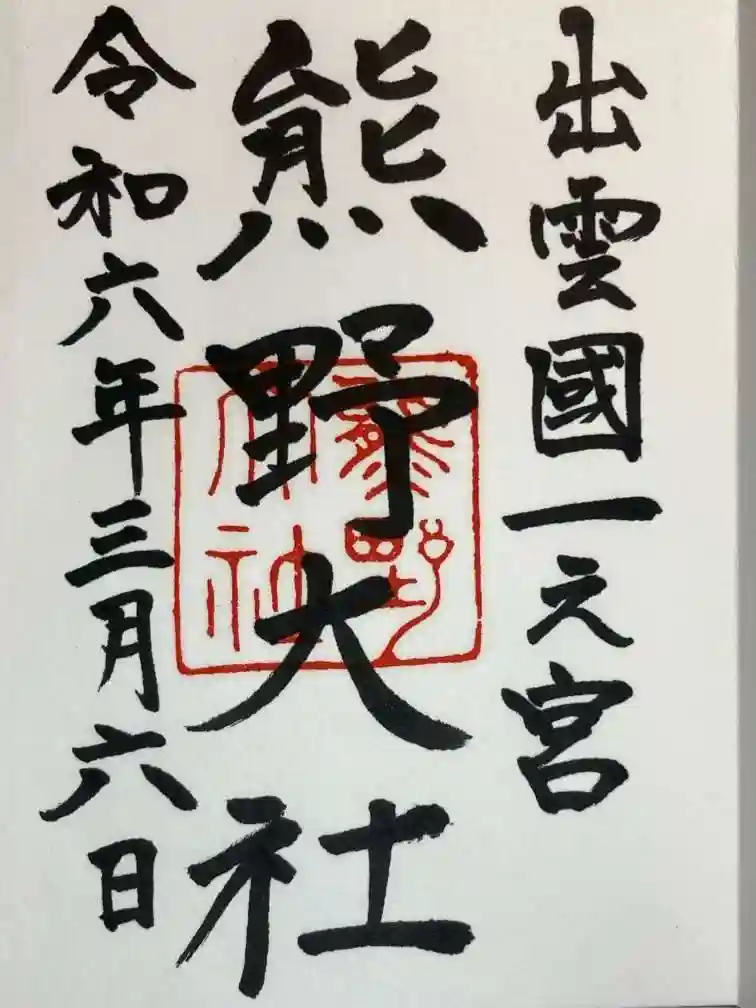 出雲國一之宮
熊野大社
令和六年三月六日
熊野
大社